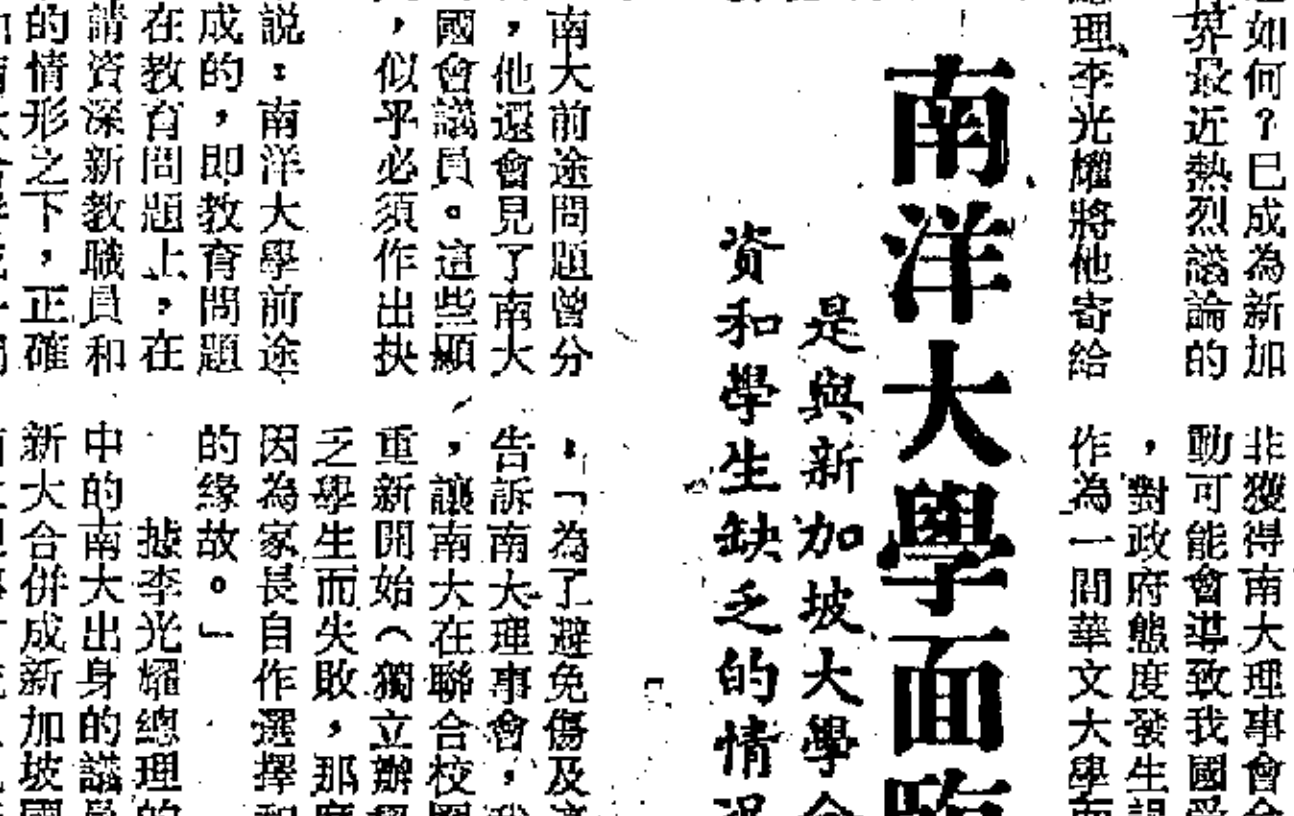 如何？已成為新加
界最近熱烈議論的
理李光耀將他寄給
非獲得南大理事會
動可能會導致我國
，對政府態度發生
作為一間華文大學
南洋大學面臨
是與新加坡大學
資和學生缺乏的情
南大前途問題曾分
，他還會見了南大
國會議員。這些顯
，似乎必須作出抉
説：南洋大學前途
成的，即教育問題
在教育問題上，在
請資深新教職員和
的情形之下，正確
：「為了避免傷及
告訴南大理事會，我
，讓南大在聯合校
重新開始（獨立辦
之學生而失敗，那
因為家長自作選擇和
的緣故。」
據李光耀總理的
中的南大出身的議員
新大合併成新加坡國